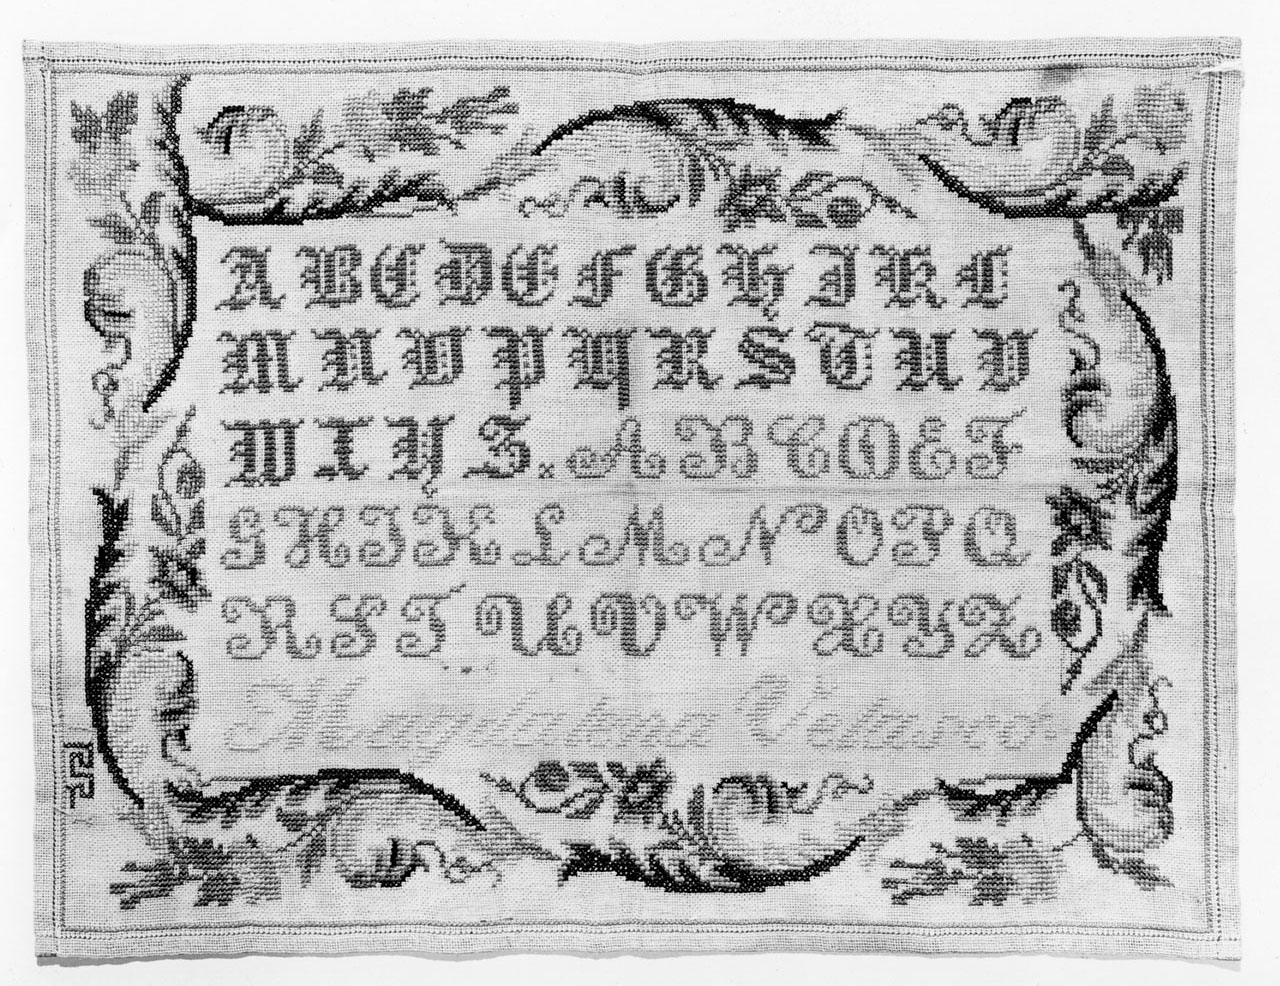 A B C D E F G H I K L
M N O P Q R S T U V
W X Y Z . A B C D E F
G H I K L M N O P Q
R S T U V W X Y Z
Magdalena Velasco.